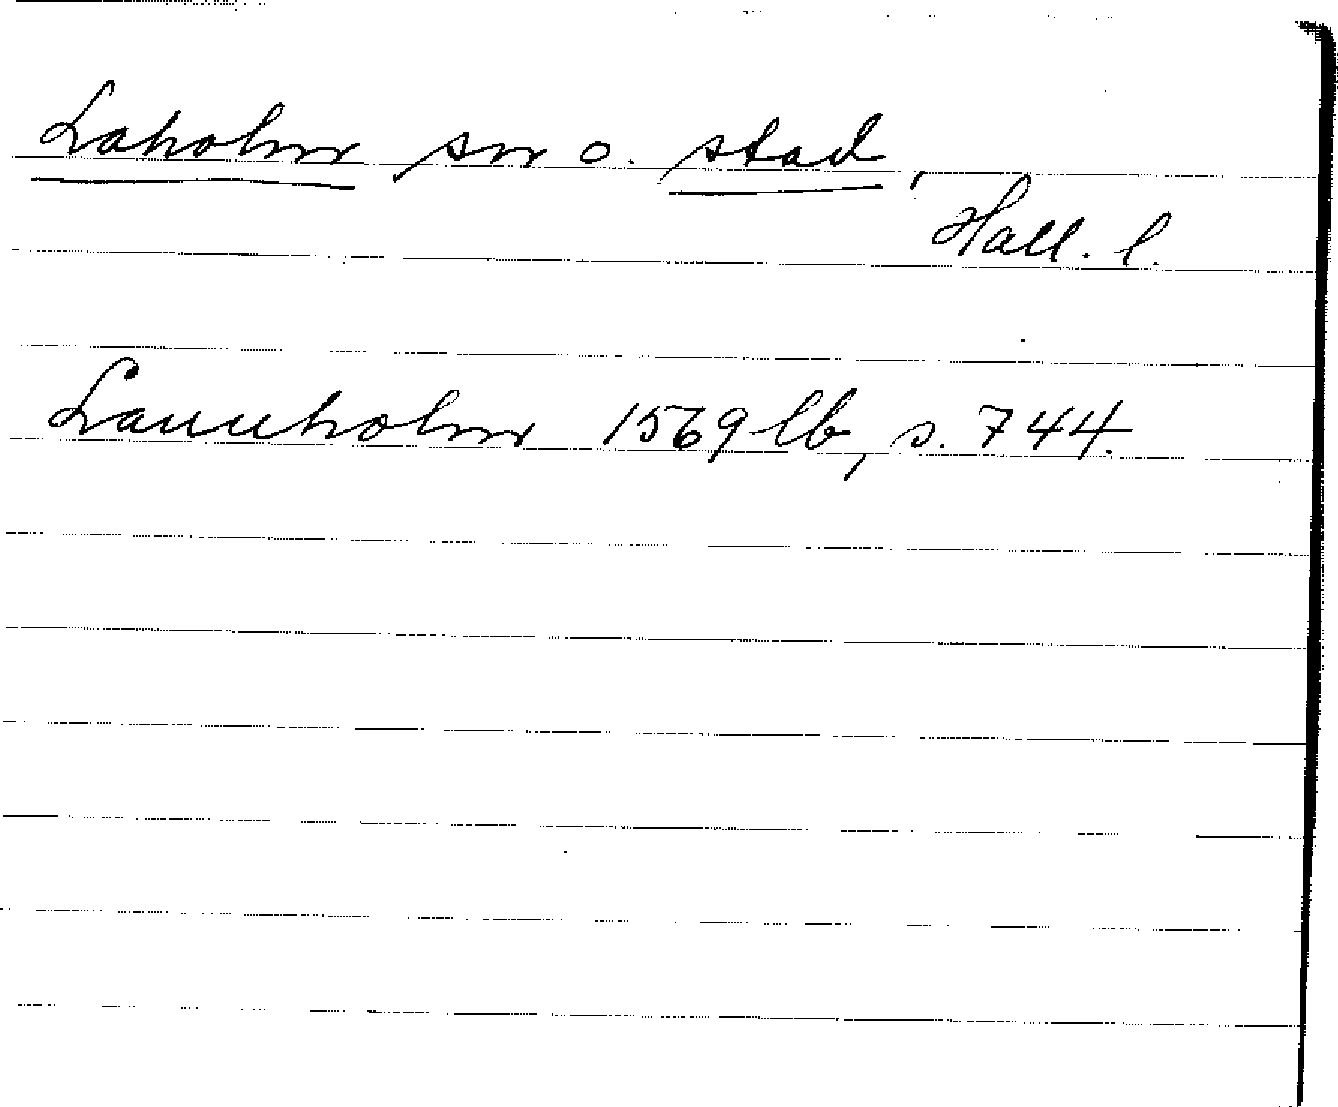 Laholm sn o. stad,
Hall. l.
Lauuholm 1569 lb, s. 744.